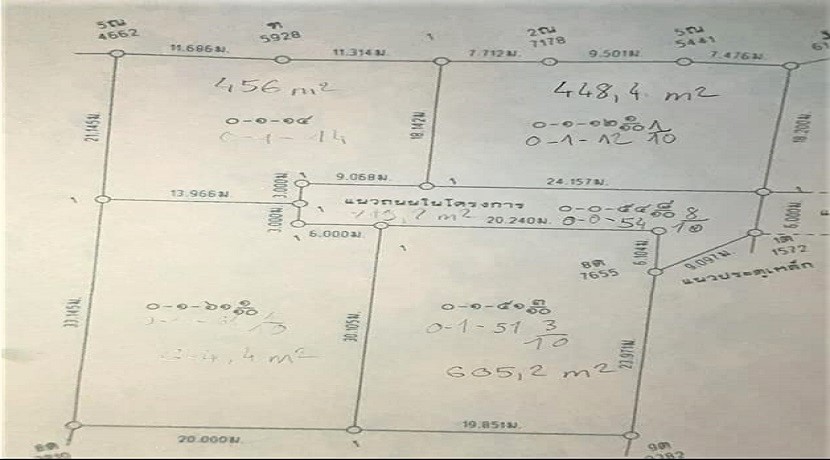 5ณ
4662
ต
5928
2ณ
7178
5ณ
5441
11.686ม.
11.314ม.
7.712ม.
9.501ม.
7.476ม.
456 m²
448,4 m²
๐-๑-๑๔
0-1-14
๐-๑-๑๒ ๑/๑๐
0-1-12 1/10
21.145ม.
18.142ม.
18.200ม.
9.068ม.
24.157ม.
13.966ม
3.000ม
3.000ม
แนวถนนในโครงการ
20.240ม.
๐-๐-๕๔ ๘/๑๐
0-0-54 8/10
6.000ม.
6.009ม.
6.104ม
8ต
7655
9.097ม.
1ต
1572
แนวประตูเหล็ก
๐-๑-๖๑ ๑/๑๐
๐-๑-๕๑ ๓/๑๐
0-1-51 3/10
33.145ม.
30.105ม
23.971ม
605,2 m²
20.000ม.
19.851ม.
9ต